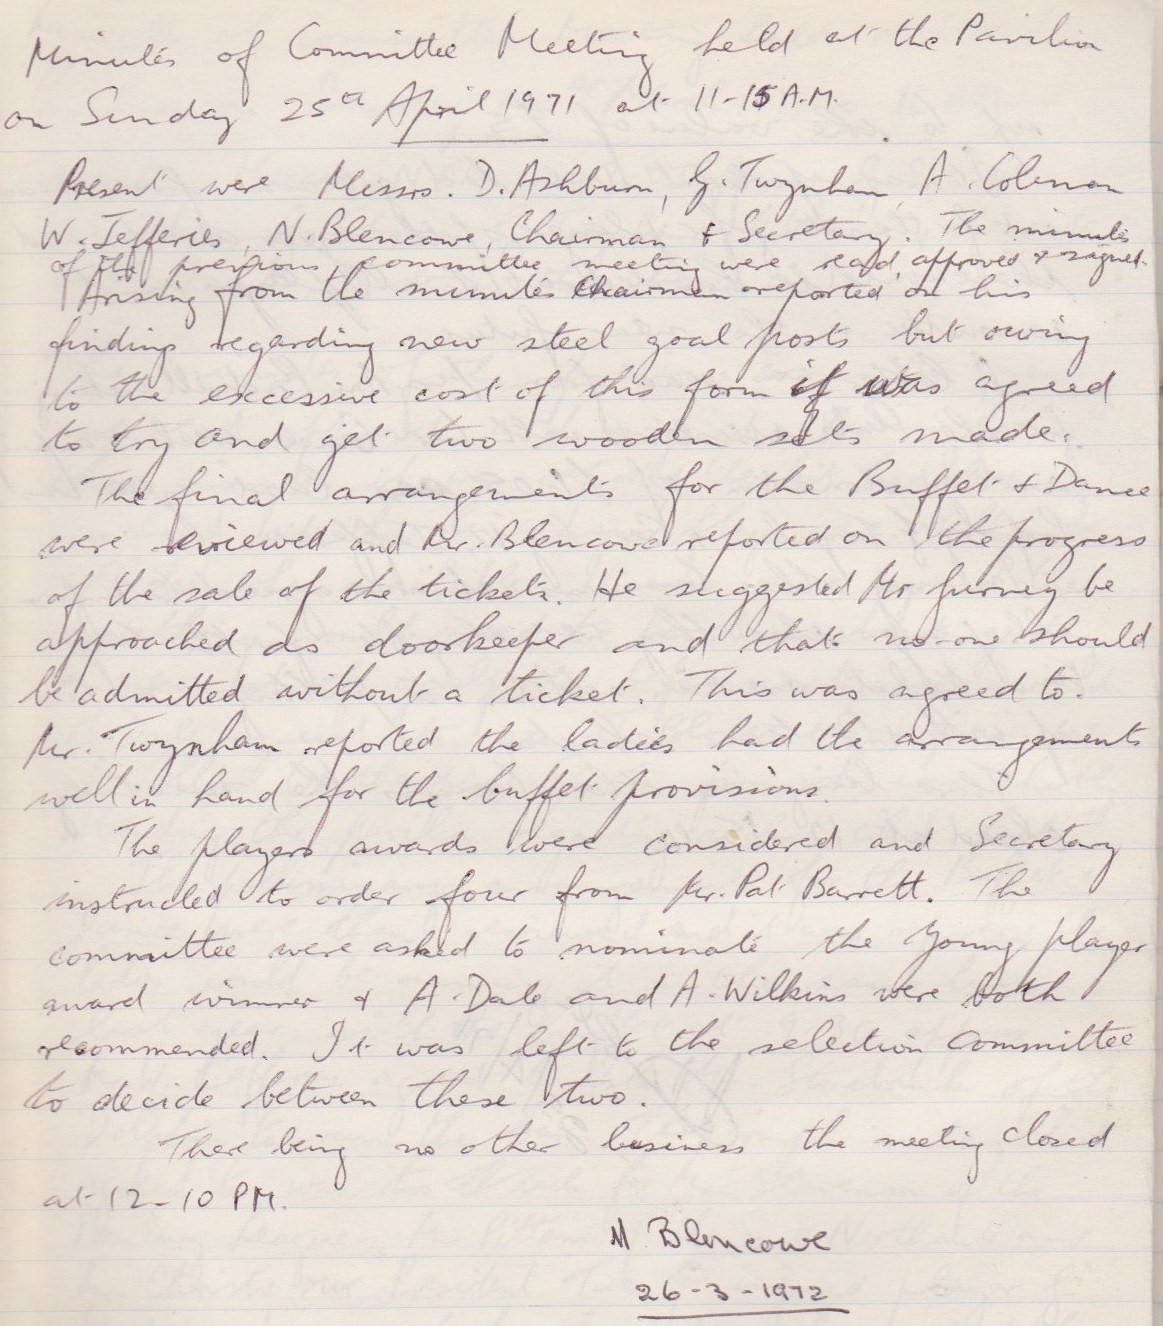 Minutes of Committee Meeting held at the Pavilion
on Sunday 25th April 1971 at 11-15 A.M.
Present were Messrs. D. Ashburn, G. Twynham, A. Coleman
W. Jefferies, N. Blencowe, Chairman & Secretary. The minutes
of the previous committee meeting were read, approved & signed.
Arising from the minutes Chairman reported on his
findings regarding new steel goal posts but owing
to the excessive cost of this form it was agreed
to try and get two wooden sets made.
The final arrangements for the Buffet & Dance
were reviewed and Mr. Blencowe reported on the progress
of the sale of the tickets. He suggested Mr Gurney be
approached as doorkeeper and that no-one should
be admitted without a ticket. This was agreed to.
Mr. Twynham reported the ladies had the arrangements
well in hand for the buffet provisions.
The players awards were considered and Secretary
instructed to order four from Mr. Pat Barrett. The
committee were asked to nominate the Young player
award winner & A. Dale and A. Wilkins were both
recommended. It was left to the selection committee
to decide between these two.
There being no other business the meeting closed
at 12-10 PM.
N. Blencowe
26-3-1972